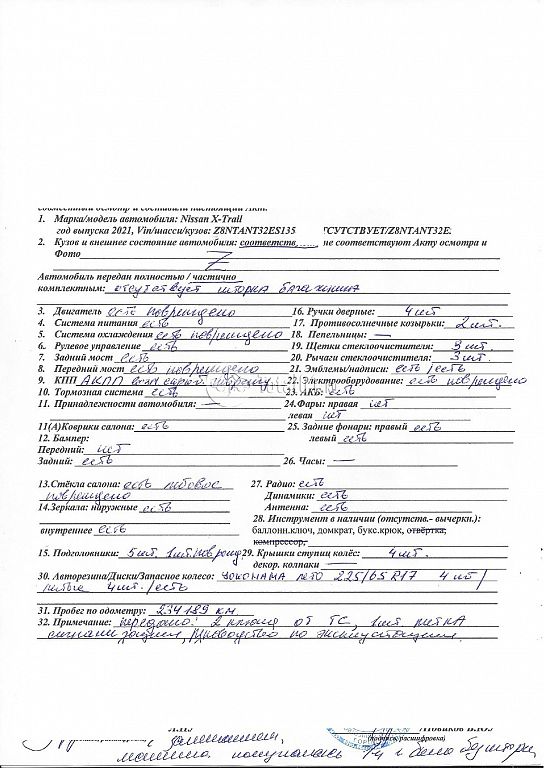 совместный осмотр и составили настоящий Акт.
1. Марка/модель автомобиля: Nissan X-Trail
год выпуска 2021, Vin/шасси/кузов: Z8NTANT32ES135 ТСУТСТВУЕТ/Z8NTANT32E.
2. Кузов и внешнее состояние автомобиля: соответств, не соответствуют Акту осмотра и
Фото Z
Автомобиль передан полностью / частично
комплектным: отсутствует шторка багажника
3. Двигатель есть повреждено 16. Ручки дверные: 4 шт
4. Система питания есть 17. Противосолнечные козырьки: 2 шт.
5. Система охлаждения есть повреждено 18. Пепельницы: —
6. Рулевое управление есть 19. Щетки стеклоочистителя: 3 шт.
7. Задний мост есть 20. Рычаги стеклоочистителя: 3 шт.
8. Передний мост есть повреждено 21. Эмблемы/надписи: есть / есть
9. КПП АКПП 22. Электрооборудование: есть повреждено
10. Тормозная система есть 23. АКБ: есть
11. Принадлежности автомобиля: — 24.Фары: правая нет
левая нет
11(А)Коврики салона: есть 25. Задние фонари: правый есть
12. Бампер: левый есть
Передний: нет
Задний: есть 26. Часы: —
13.Стёкла салона: есть лобовое 27. Радио: есть
повреждено Динамики: есть
14.Зеркала: наружные есть Антенна: есть
28. Инструмент в наличии (отсутств.- вычеркн.):
внутреннее есть баллонн.ключ, домкрат, букс.крюк, отвёртка,
компрессор,
15. Подголовники: 5 шт. 1 шт. повреж 29. Крышки ступиц колёс: 4 шт.
декор. колпаки —
30. Авторезина/Диски/Запасное колесо: YOKOHAMA лето 225/65 R17 4 шт /
литые 4 шт. / есть
31. Пробег по одометру: 234189 км
32. Примечание: передано: 2 ключа от ТС, 1 шт метка
сигнализации, руководство по эксплуатации.
Новиков В.Ю.
(подпись/расшифровка)
с замечанием,
машина поступила без шторки